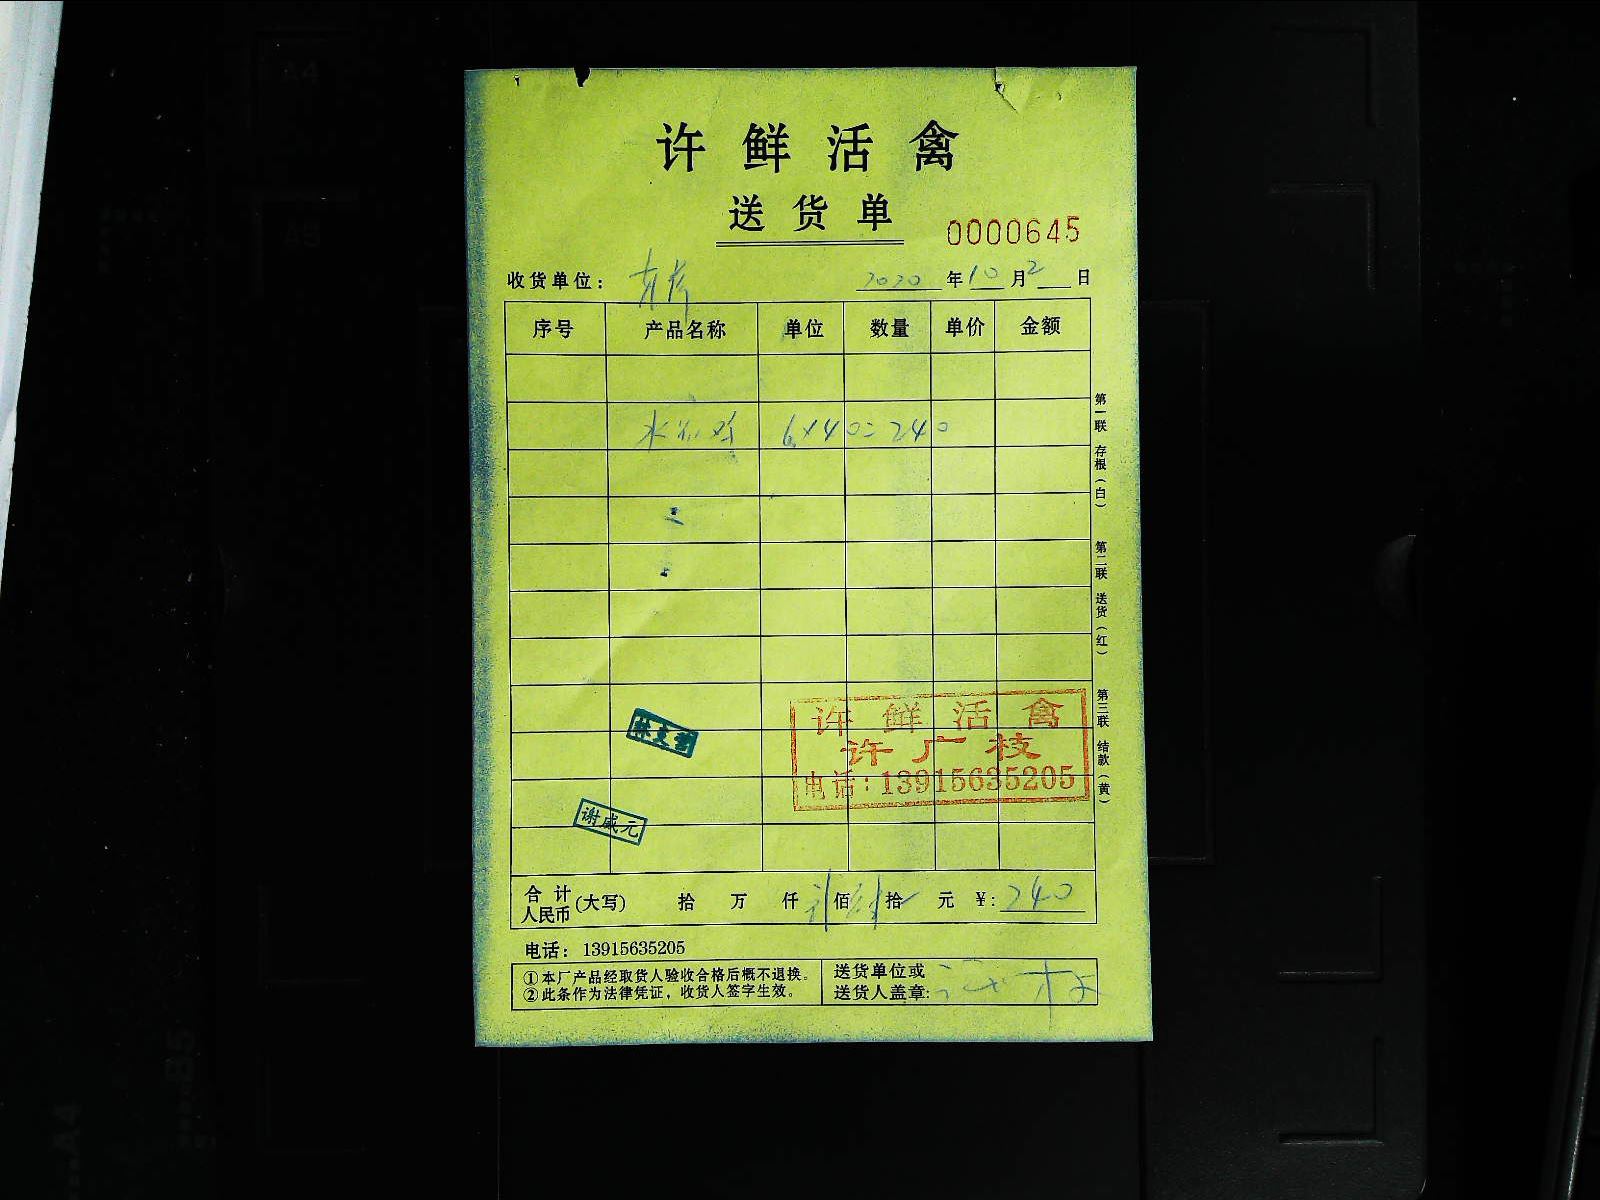 许鲜活禽
送货单
0000645
收货单位:
2020年10月2日
序号 产品名称 单位 数量 单价 金额
水 6×40=240
第一联 存根(白)
第二联 送货(红)
第三联 结款(黄)
许鲜活禽
许广枝
电话:13915635205
谢咸元
合计人民币(大写) 拾 万 仟 佰 拾 元 ¥:240
电话: 13915635205
①本厂产品经取货人验收合格后概不退换。
②此条作为法律凭证,收货人签字生效。
送货单位或
送货人盖章:
A4
A5
B5
A4